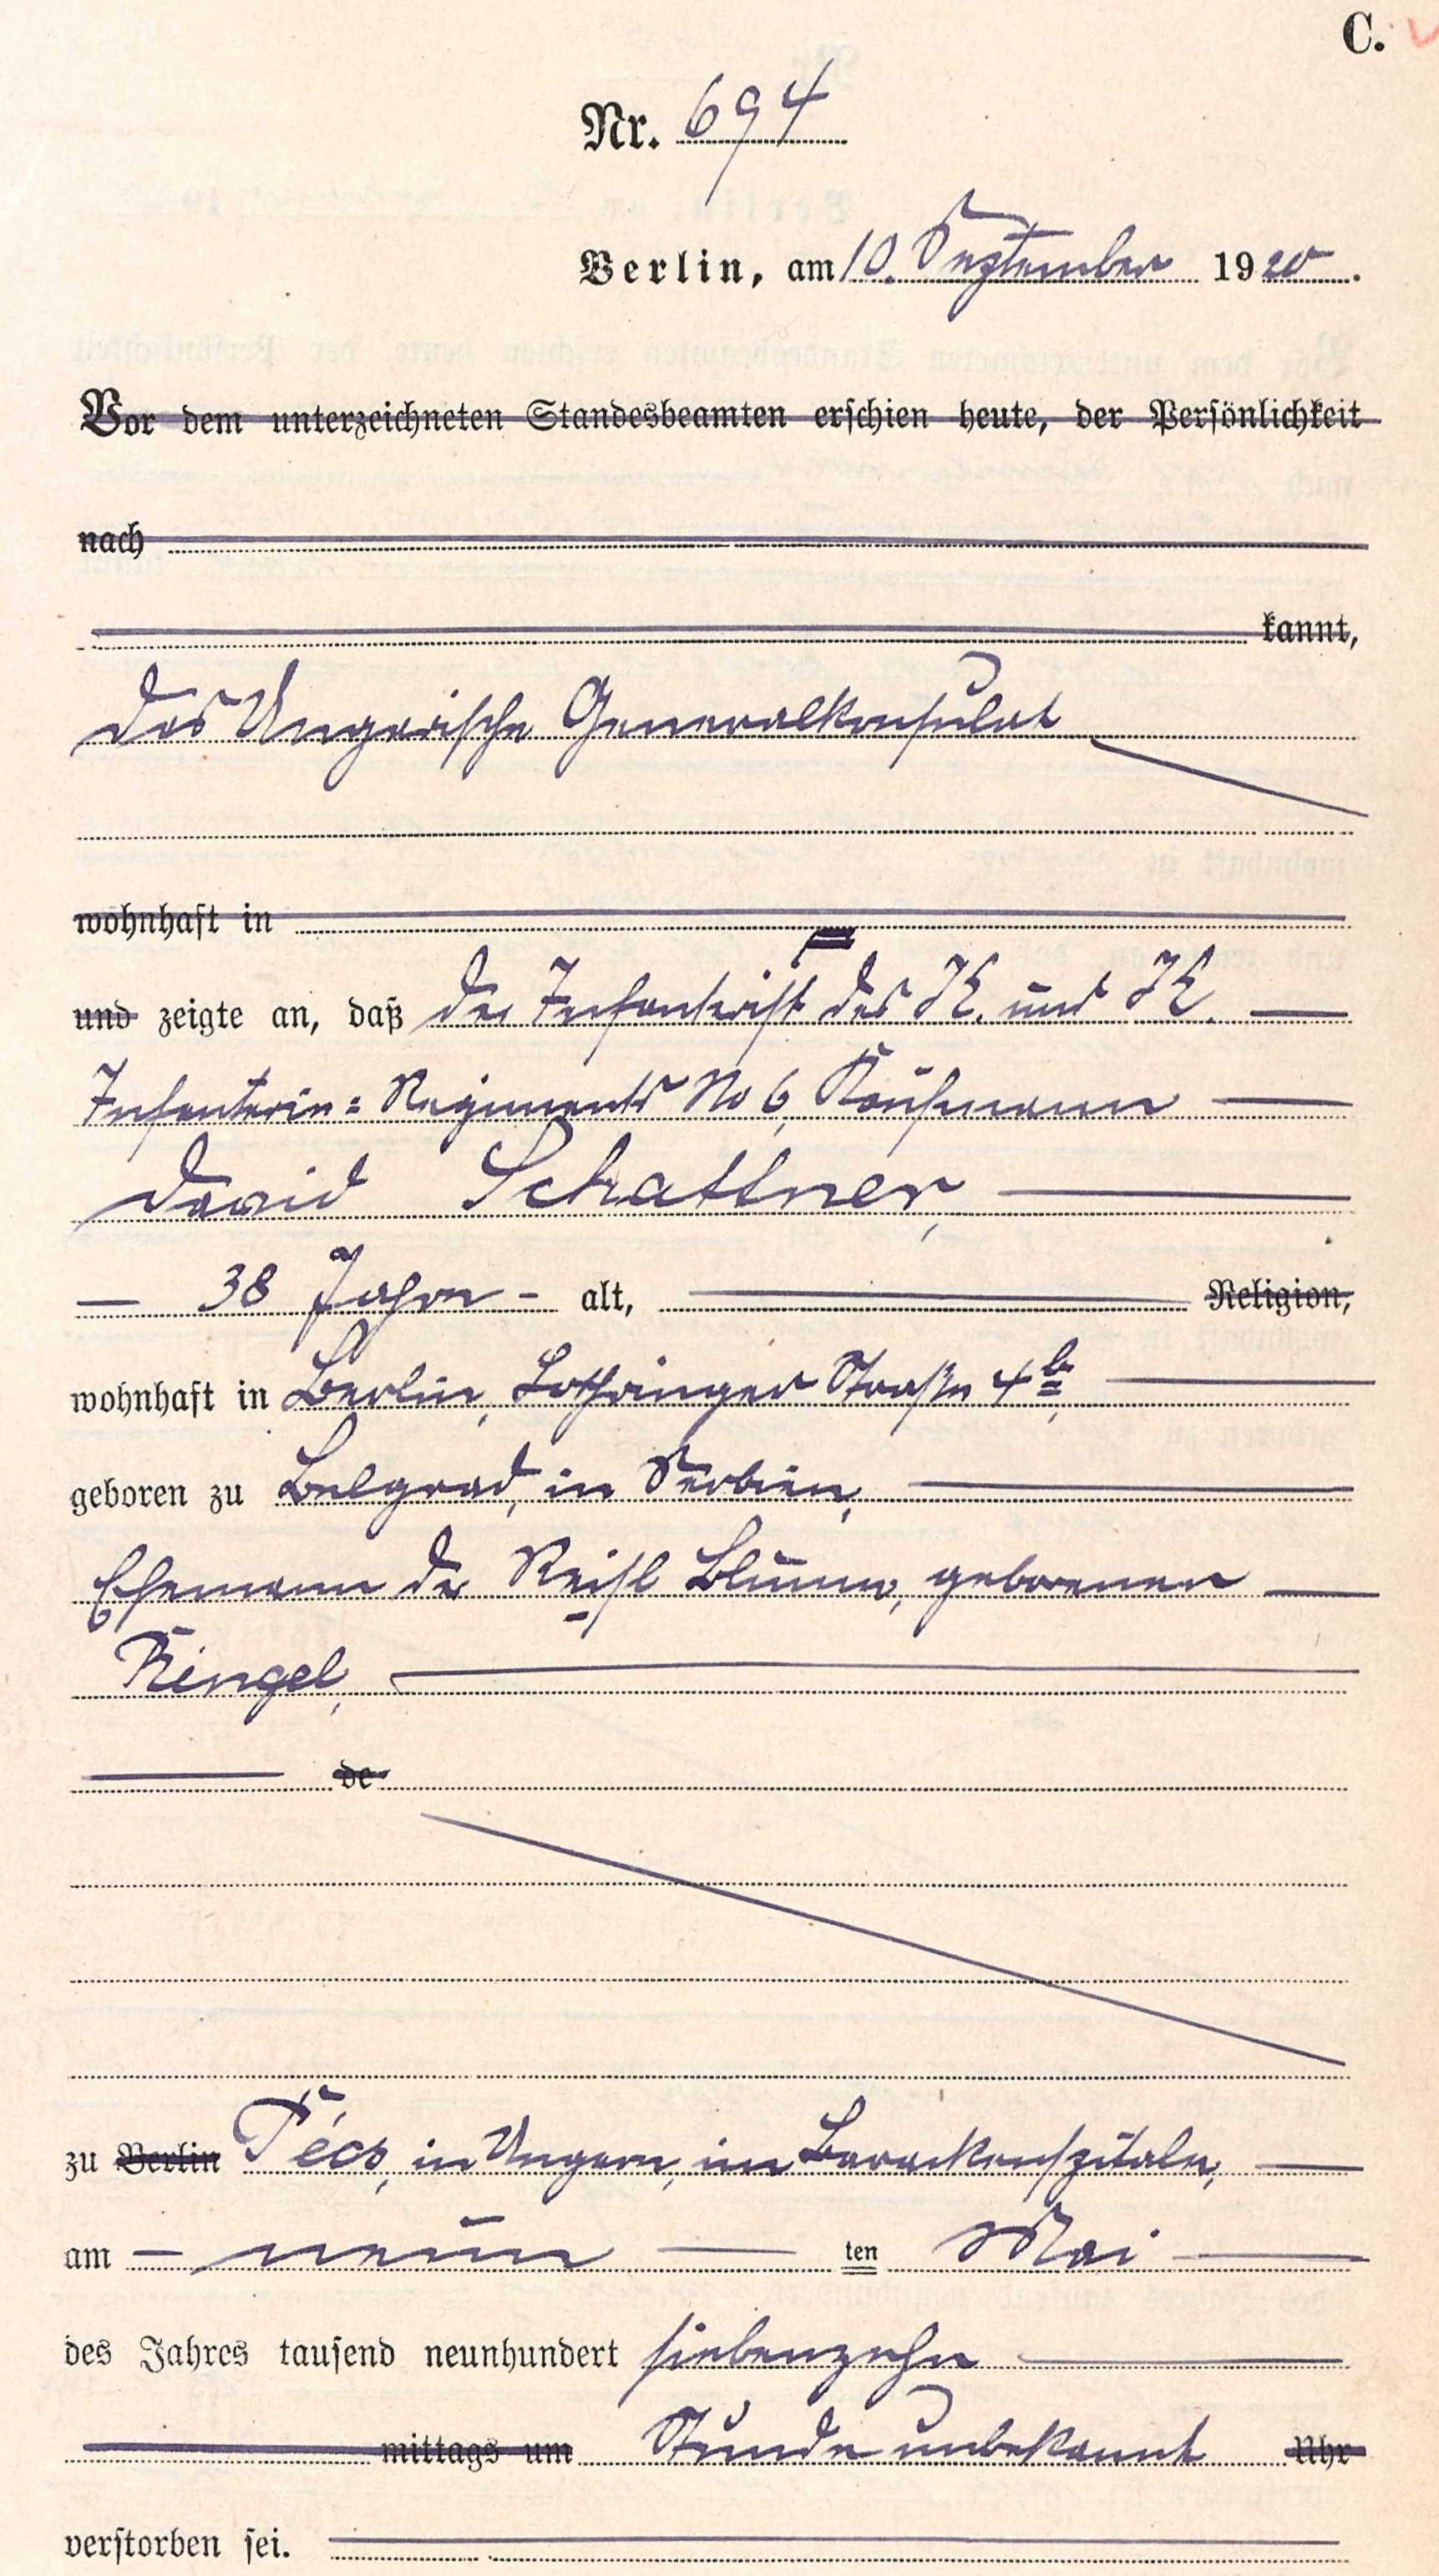 C.
Nr. 694
Berlin, am 10. September 1920.
Vor dem unterzeichneten Standesbeamten erschien heute, der Persönlichkeit
nach
kannt,
Das Ungarische Generalkonsulat
wohnhaft in
und zeigte an, daß der Infanterist des K. und K.
Infanterie-Regiments No 6, Kaufmann
David Schattner,
38 Jahre alt, Religion,
wohnhaft in Berlin, Lothringer Straße 4b,
geboren zu Belgrad, in Serbien,
Ehemann der Reisl Blume, geborenen
Ringel,
de
zu Berlin Pécs, in Ungarn, im Barackenspitale,
am neun ten Mai
des Jahres tausend neunhundert siebenzehn
mittags um Stunde unbekannt Uhr
verstorben sei.